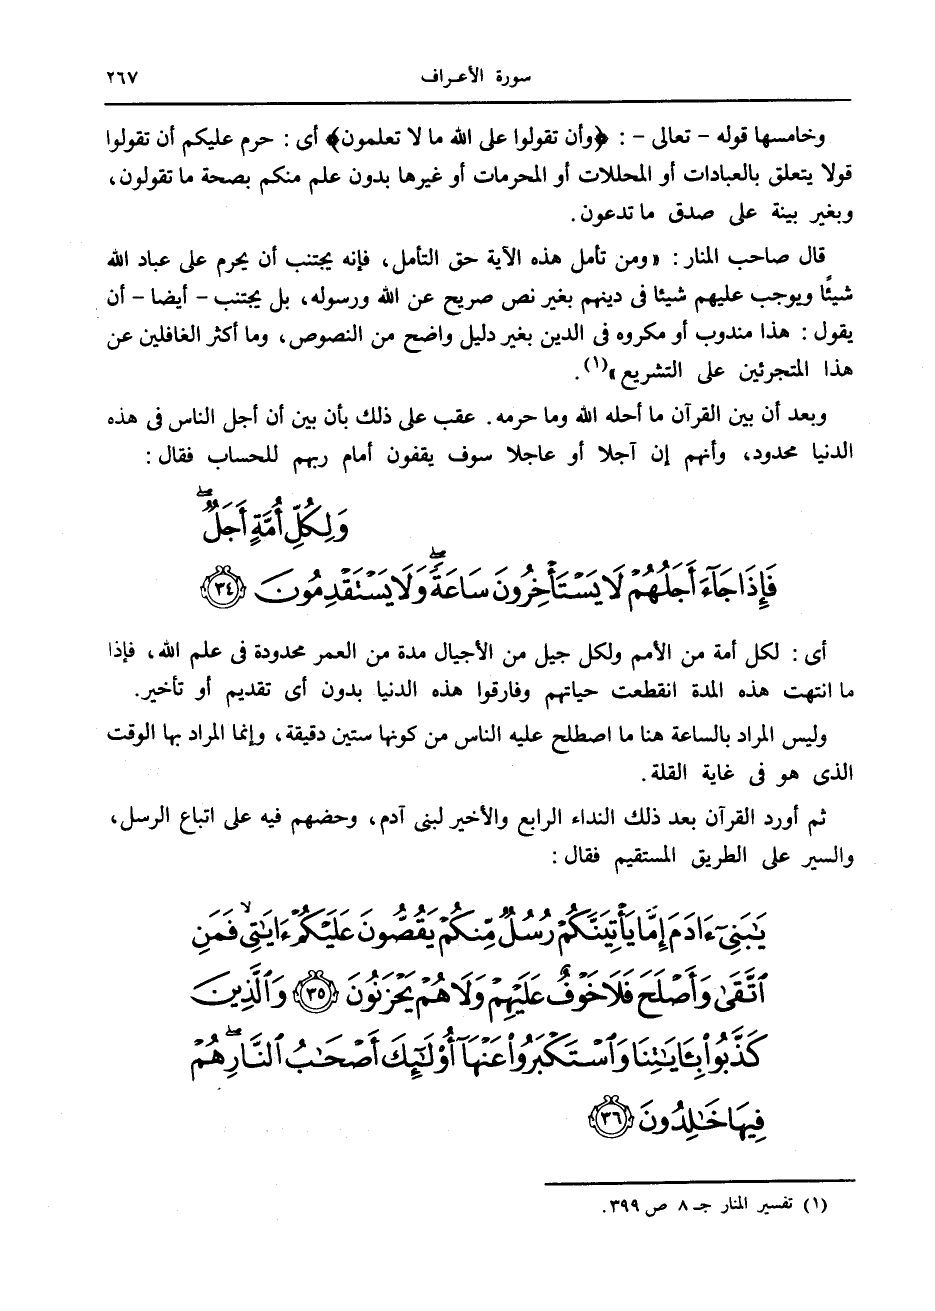 سورة الأعراف ٢٦٧
وخامسها قوله - تعالى - : ﴿وأن تقولوا على الله ما لا تعلمون﴾ أى : حرم عليكم أن تقولوا
قولا يتعلق بالعبادات أو المحللات أو المحرمات أو غيرها بدون علم منكم بصحة ما تقولون،
وبغير بينة على صدق ما تدعون.
قال صاحب المنار : «ومن تأمل هذه الآية حق التأمل، فإنه يجتنب أن يحرم على عباد الله
شيئًا ويوجب عليهم شيئا فى دينهم بغير نص صريح عن الله ورسوله، بل يجتنب - أيضا - أن
يقول : هذا مندوب أو مكروه فى الدين بغير دليل واضح من النصوص، وما أكثر الغافلين عن
هذا المتجرئين على التشريع»(١).
وبعد أن بين القرآن ما أحله الله وما حرمه. عقب على ذلك بأن بين أن أجل الناس فى هذه
الدنيا محدود، وأنهم إن آجلا أو عاجلا سوف يقفون أمام ربهم للحساب فقال :
وَلِكُلِّ أُمَّةٍ أَجَلٌ ۖ
فَإِذَا جَآءَ أَجَلُهُمْ لَا يَسْتَأْخِرُونَ سَاعَةً ۖ وَلَا يَسْتَقْدِمُونَ ﴿٣٤﴾
أى : لكل أمة من الأمم ولكل جيل من الأجيال مدة من العمر محدودة فى علم الله، فإذا
ما انتهت هذه المدة انقطعت حياتهم وفارقوا هذه الدنيا بدون أى تقديم أو تأخير.
وليس المراد بالساعة هنا ما اصطلح عليه الناس من كونها ستين دقيقة، وإنما المراد بها الوقت
الذى هو فى غاية القلة.
ثم أورد القرآن بعد ذلك النداء الرابع والأخير لبنى آدم، وحضهم فيه على اتباع الرسل،
والسير على الطريق المستقيم فقال :
يَٰبَنِىٓ ءَادَمَ إِمَّا يَأْتِيَنَّكُمْ رُسُلٌ مِّنكُمْ يَقُصُّونَ عَلَيْكُمْ ءَايَٰتِى ۙ فَمَنِ
ٱتَّقَىٰ وَأَصْلَحَ فَلَا خَوْفٌ عَلَيْهِمْ وَلَا هُمْ يَحْزَنُونَ ﴿٣٥﴾ وَٱلَّذِينَ
كَذَّبُوا۟ بِـَٔايَٰتِنَا وَٱسْتَكْبَرُوا۟ عَنْهَآ أُو۟لَٰٓئِكَ أَصْحَٰبُ ٱلنَّارِ ۖ هُمْ
فِيهَا خَٰلِدُونَ ﴿٣٦﴾
(١) تفسير المنار جـ ٨ ص ٣٩٩.